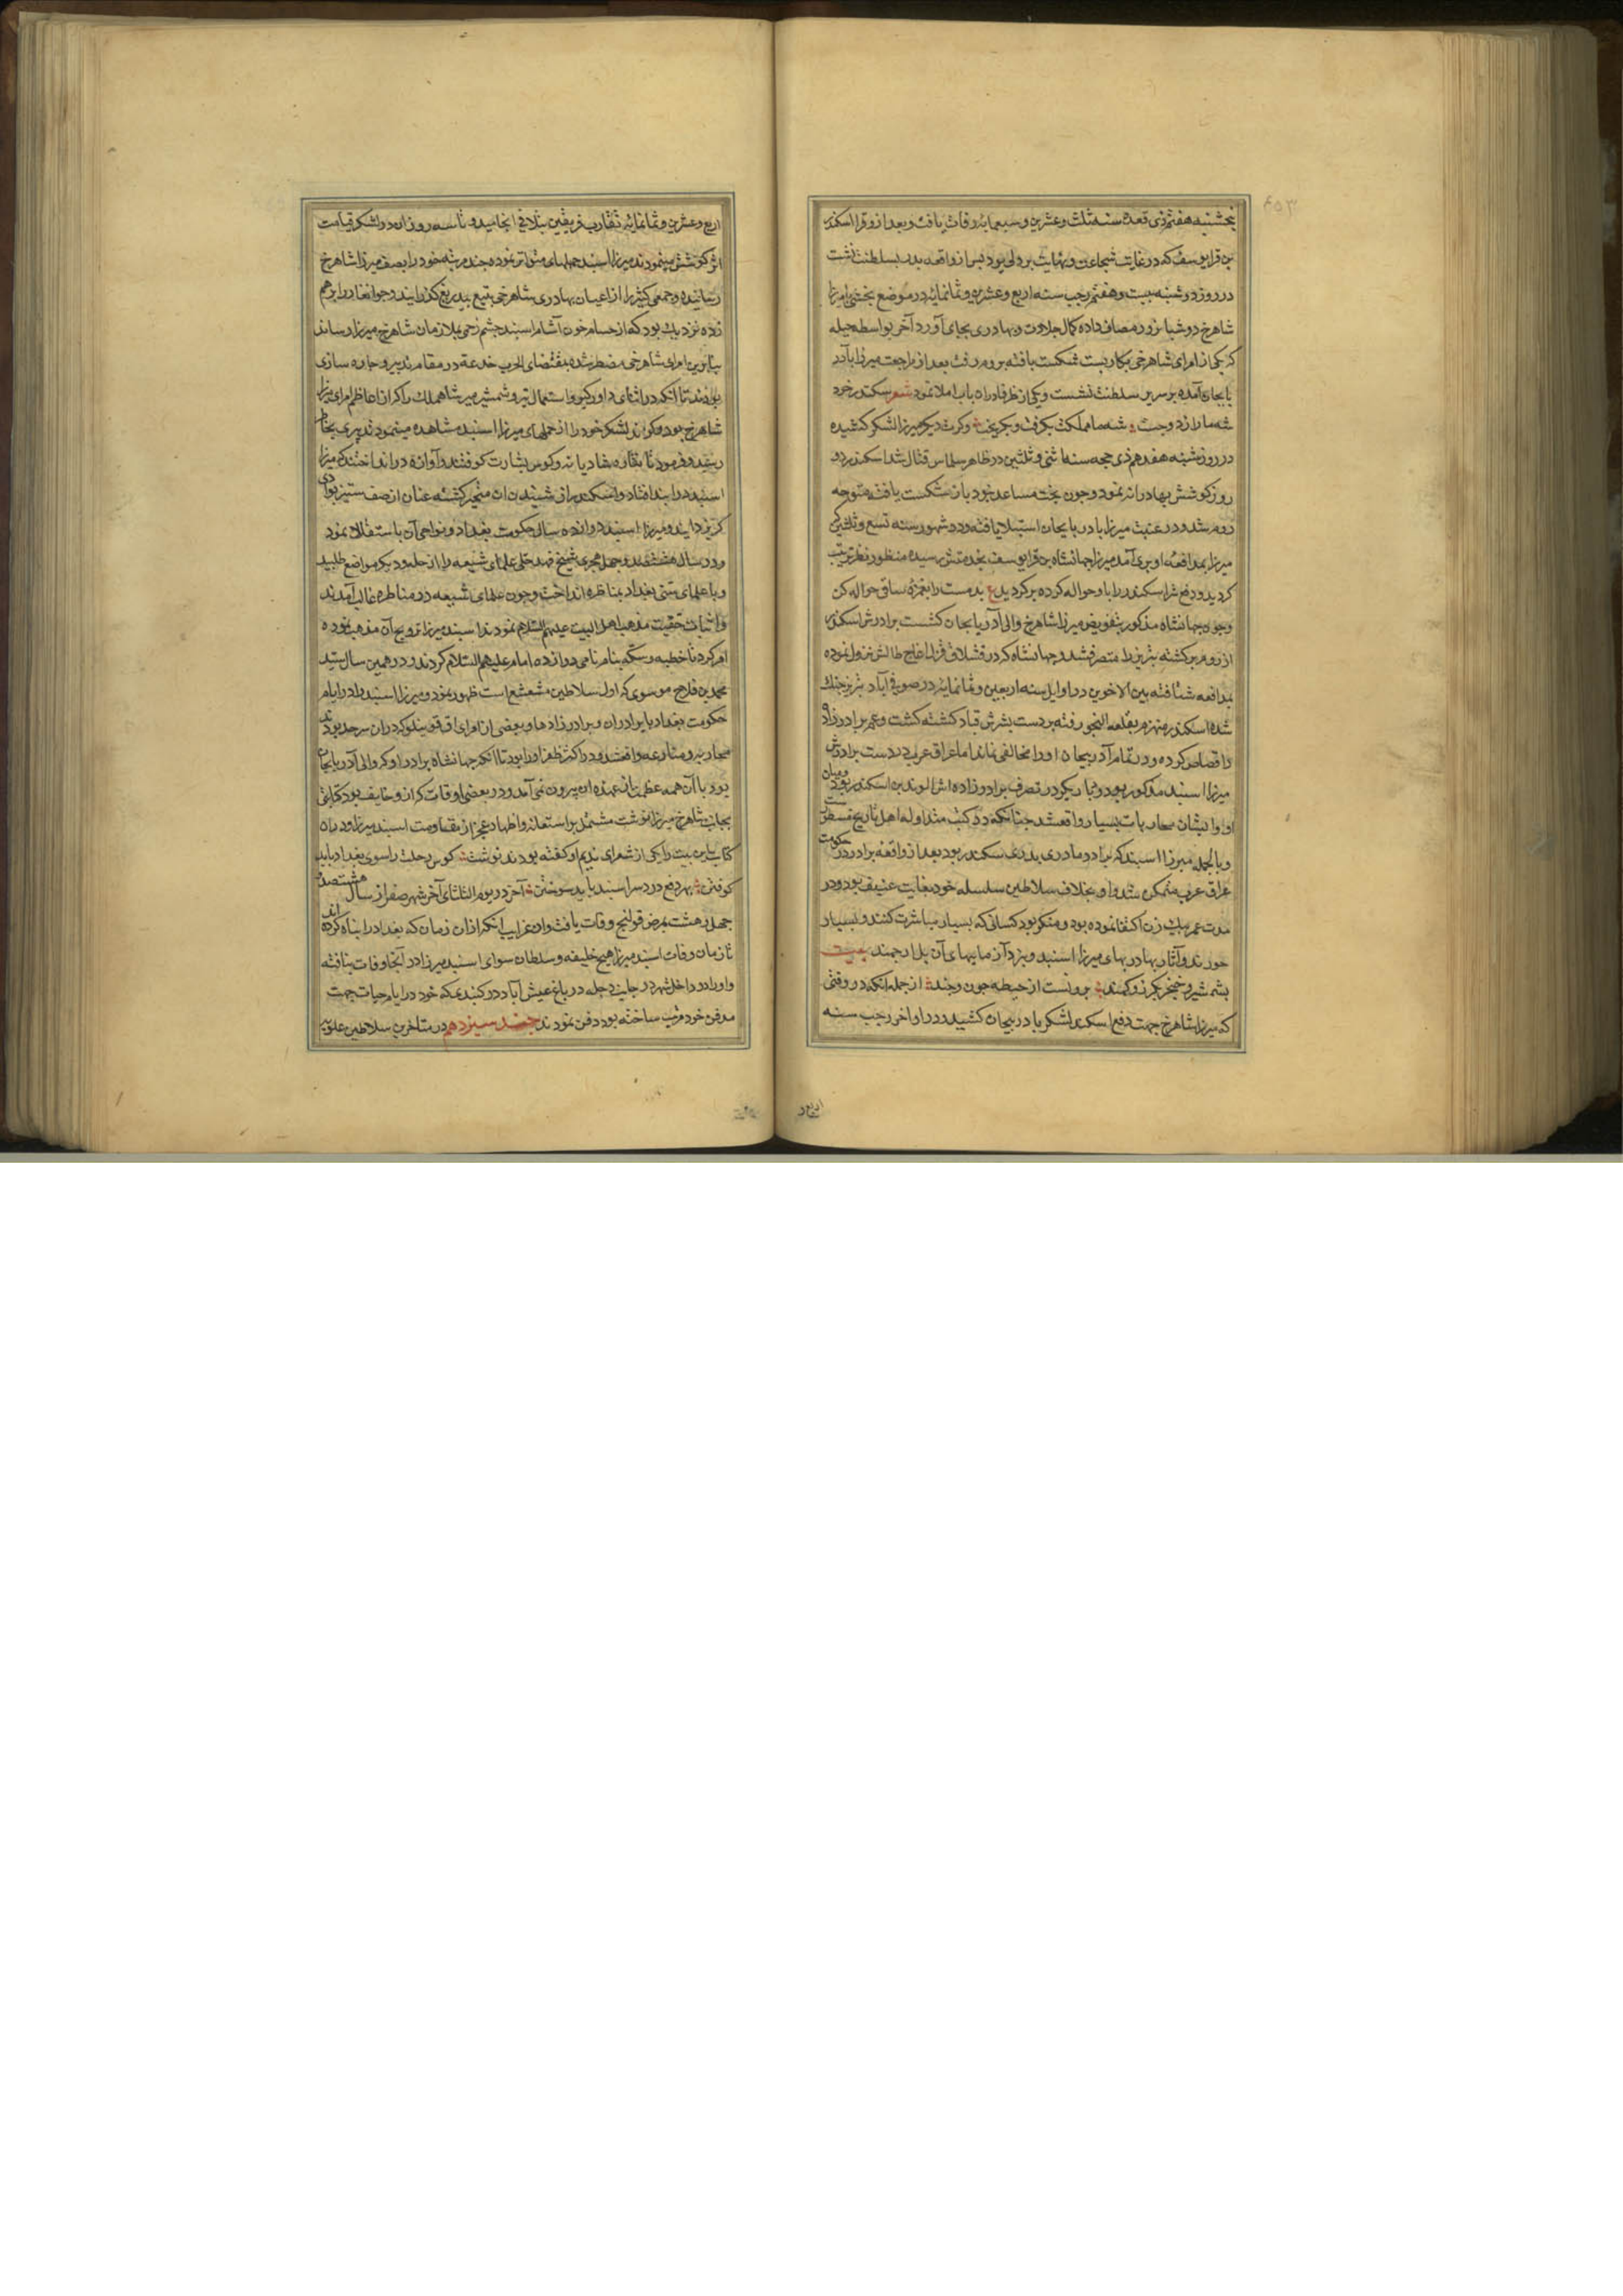 پنجشنبه هفتم ذی قعده سنه ثلث وعشرین وسبعمایه وفات یافت وبعد ازو قرا اسکندر
بن قرا یوسف که در غایت شجاعت ونهایت پر دلی بود پس از واقعه پدر بسلطنت نشست
در روز دوشنبه بیست وهفتم رجب سنه اربع وعشرین وثمانمایه در موضع یخشی با میرزا
شاهرخ دو شبانروز مصاف داده کمال جلادت وبهادری بجای آورد آخر بواسطه حیله
که یکی از امرای شاهرخی بکار بست شکست یافته بروم رفت بعد از مراجعت میرزا بآذر
بایجان آمده بر سریر سلطنت نشست ویکی از ظرفا در آن باب املا نمود شعر سکندر خرد
شه ما را زد وجست شه ما مملکت بگرفت وبگریخت وکرت دیگر میرزا لشکر کشیده
در روز شنبه هفدهم ذی حجه سنه اثنی وثلثین در ظاهر سلماس قتال شد اسکندر دو
روز کوشش بهادرانه نمود وچون بخت مساعد نبود باز شکست یافته متوجه
روم شد ودر غیبت میرزا بآذربایجان استیلا یافته ودر شهور سنه تسع وثلثین که
میرزا بمدافعه او بری آمد میرزا جهانشاه بن قرا یوسف بخدمتش رسیده منظور نظر تربیت
گردید ودفع شر اسکندر را باو حواله کرده برگردید ع بدمست را بغمزه ساقی حواله کن
وچون جهانشاه مذکور بتفویض میرزا شاهرخ والی آذربایجان گشت برادرش اسکندر
از روم برگشته تبریز را متصرف شد وجهانشاه که در قشلاق قزل اغاج طالش نزول نموده
بمدافعه شتافته بین الاخوین در اوایل سنه اربعین وثمانمایه در صوفی آباد تبریز جنک
شده اسکندر منهزم بقلعه النجو رفته بر دست پسرش قباد کشته گشت وعم برادر زاده
را قصاص کرده ودر تمام آذربیجان او را مخالفی نماند اما عراق عرب در دست برادرش
میرزا اسبند مذکور بود ودیار بکر در تصرف برادر زاده اش الوند بن اسکندر بود ومیان
او وایشان محاربات بسیار واقع شد چنانکه در کتب متداوله اهل تاریخ مسطور است
وبالجمله میرزا اسبند که برادر مادری پدری سکندر بود بعد از واقعه برادر در حکومت
عراق عرب متمکن شد واو بخلاف سلاطین سلسله خود بغایت عفیف بود ودر
مدت عمر بیک زن اکتفا نموده بود ومنکر بود کسانی که بسیار مباشرت کنند وبسیار
خورند وآثار بهادریهای میرزا اسبند وبزد آزماییهای آن یل ارجمند بیت
بشمشیر وخنجر بگرز وکمند برونست از حیطه چون وچند از جمله آنکه در وقتی
که میرزا شاهرخ جهت دفع اسکندر لشکر بآذربیجان کشید ودر اواخر رجب سنه
اربع و
اربع وعشرین وثمانمایه تقارب فریقین بتلاقی انجامید وتا سه روز آن دو لشکر قیامت
اثر کوشش مینمودند میرزا اسبند حملهای متواتر نموده چند مرتبه خود را بصف میرزا شاهرخ
رسانیده وجمعی کثیر را از اعیان بهادری شاهرخی بتیغ بیدریغ گذرانید وجوانغار را برهم
زده نزدیک بود که از حسام خون آشام اسبند چشم زخمی بملازمان شاهرخ میرزا رساند
بنابرین امرای شاهرخی مضطر شده بمقتضای الحرب خدعة در مقام تدبیر وچاره سازی
بودند تا آنکه در اثنای دار وگیر واستعمال تیر وشمشیر میر شاهملک را که از اعاظم امرای میرزا
شاهرخ بود وگریز لشکر خود را از حملهای میرزا اسبند مشاهده مینمود تدبیری بخاطر
رسید وفرمود تا نقاره شادیانه وکوس بشارت کوفتند وآوازه در انداختند که میرزا
اسبند در بند افتاد واسکندر از شنیدن آن متحیر گشته عنان از صف ستیز بوادی
گریز گردانید ومیرزا اسبند دوازده سال حکومت بغداد ونواحی آن باستقلال نمود
ودر سال هشتصد وچهل هجری شیخ فهد حلی علمای شیعه را از حله ودیگر مواضع طلبید
وبا علمای سنی بغداد بمناظره انداخت وچون علمای شیعه در مناظره غالب آمدند
واثبات حقیت مذهب اهل البیت علیهم السلام نمودند اسبند میرزا ترویج آن مذهب نموده
امر کرد تا خطبه وسکه بنام نامی دوازده امام علیهم السلام کردند ودر همین سال سید
محمد بن فلاح موسوی که اول سلاطین مشعشع است ظهور نمود ومیرزا اسبند را در ایام
حکومت بغداد با برادران وبرادر زادها وبعضی از امرای اق قوینلو که در آن سرحد بودند
محاربه ومنازعه واقع شد ودر اکثر ظفر او را بود تا آنکه جهانشاه برادر او که والی آذربایجان
بود با آن همه عظمت از عهده او بیرون نمی آمد ودر بعضی اوقات گران وخایف بود کتابتی
بجانب شاهرخ میرزا نوشت مشتمل بر استعانه واظهار عجز از مقاومت اسبند میرزا ودر آن
کتابت این بیت را یکی از شعرای ندیم او گفته بودند نوشت کوس رحلت را سوی بغداد باید
کوفتن بهر دفع درد سر اسبند باید سوختن آخر در یوم الثلثای آخر شهر صفر از سال هشتصد و
چهل وهشت بمرض قولنج وفات یافت واز غرایب آنکه از آن زمان که بغداد را بناه کرده اند
تا زمان وفات اسبند میرزا هیچ خلیفه وسلطان سوای اسبند میرزا در آنجا وفات نیافته
واو را در داخل شهر در جانب دجله در باغ عیش آباد در گنبدی که خود در ایام حیات جهت
مدفن خود مرتب ساخته بود دفن نمودند جند سیزدهم در متاخرین سلاطین علویه